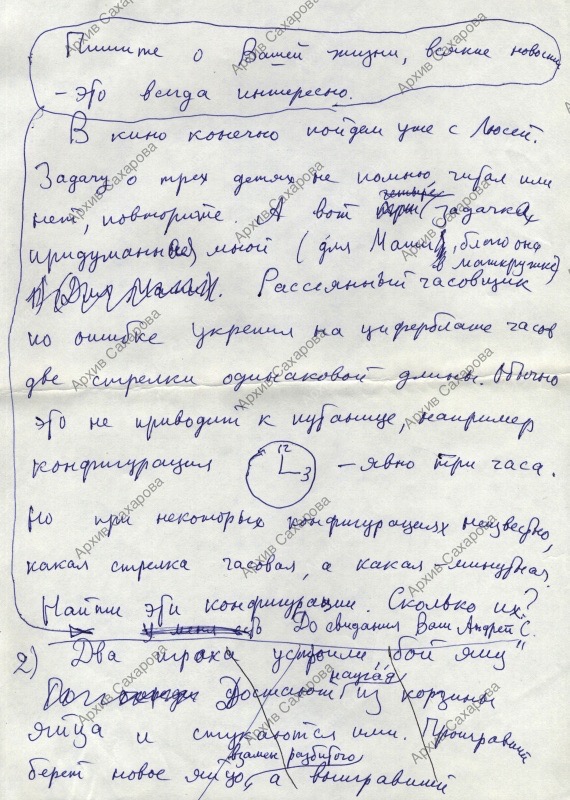 Пишите о Вашей жизни, всякие новости
– это всегда интересно.
В кино конечно пойдем уже с Люсей.
Задачу о трех детях не помню, читал или
нет, повторите. А вот четыре задачка,
придуманная мной (для Маши, благо она
в маткружке)
1) (Для Маши). Рассеянный часовщик
по ошибке укрепил на циферблате часов
две стрелки одинаковой длины. Обычно
это не приводит к путанице, например
конфигурация 12 3 – явно три часа.
Но при некоторых конфигурациях неизвестно,
какая стрелка часовая, а какая – минутная.
Найти эти конфигурации. Сколько их?
У меня есть До свидания Ваш Андрей С.
2) Два игрока устроили "бой яиц"
Достают наугад из корзины
яйца и стукаются ими. Проигравший
взамен разбитого
берет новое яйцо, а выигравший
Архив Сахарова